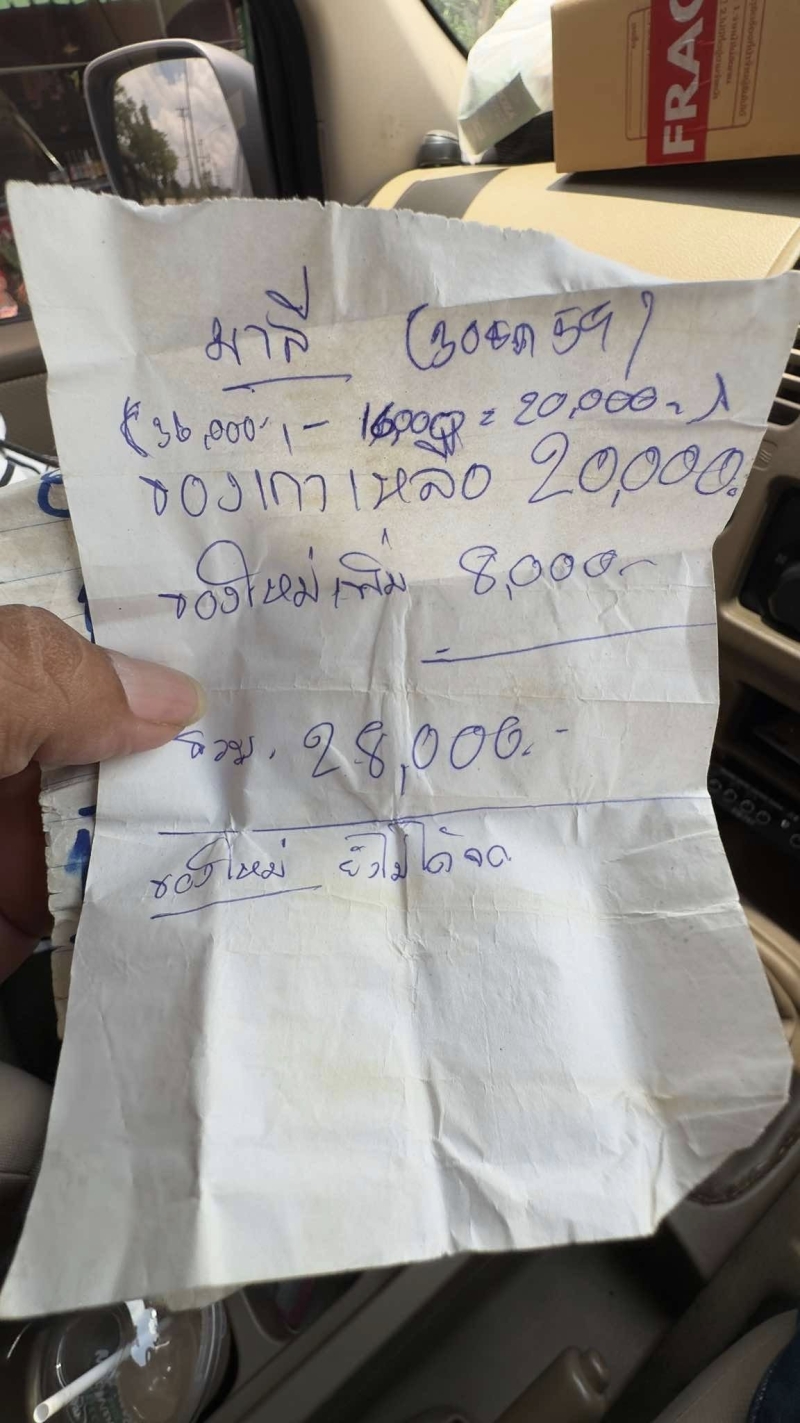 FRAG
มาลี (3 ตค 59)
(36,000.- 16,000 = 20,000.-)
ของเก่าเหลือ 20,000.
ของใหม่เพิ่ม 8,000.-
รวม. 28,000.-
ของใหม่ ยังไม่ได้จด